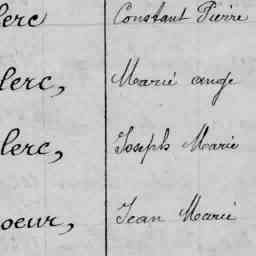 lerc Constant Pierre
lerc, Marie ange
lerc, Joseph Marie
oeur, Jean Marie